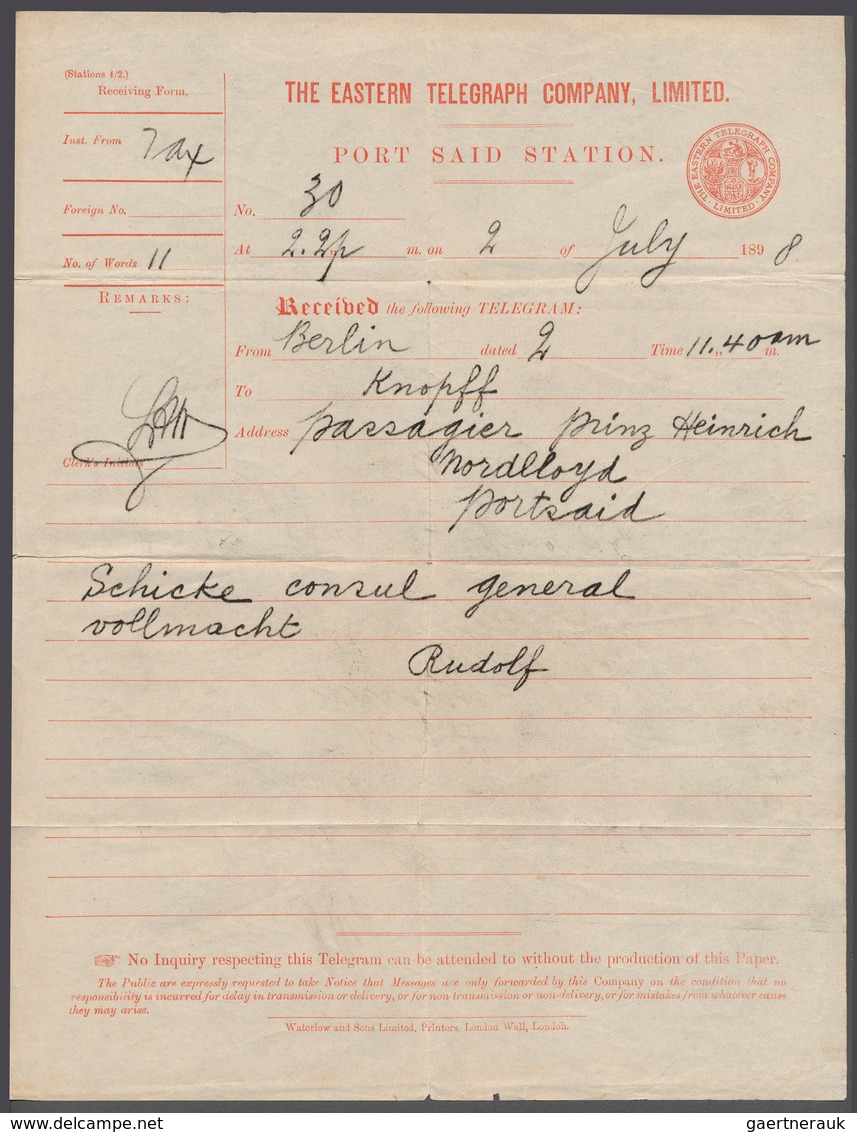 (Stations 4/2.)
Receiving Form.
Inst. From
Foreign No.
No. of Words 11
REMARKS:
Clerk's Initials
THE EASTERN TELEGRAPH COMPANY, LIMITED.
PORT SAID STATION.
THE EASTERN TELEGRAPH COMPANY · LIMITED ·
No. 30
At 2.2p m. on 2 of July 1898
Received the following TELEGRAM:
From Berlin dated 2 Time 11.40am m.
To Knopff
Address passagier prinz Heinrich
Nordlloyd
portsaid
Schicke consul general
vollmacht
Rudolf
☞ No Inquiry respecting this Telegram can be attended to without the production of this Paper.
The Public are expressly requested to take Notice that Messages are only forwarded by this Company on the condition that no
responsibility is incurred for delay in transmission or delivery, or for non-transmission or non-delivery, or for mistakes from whatever cause
they may arise.
Waterlow and Sons Limited, Printers, London Wall, London.
delcampe.net
gaertnerauk